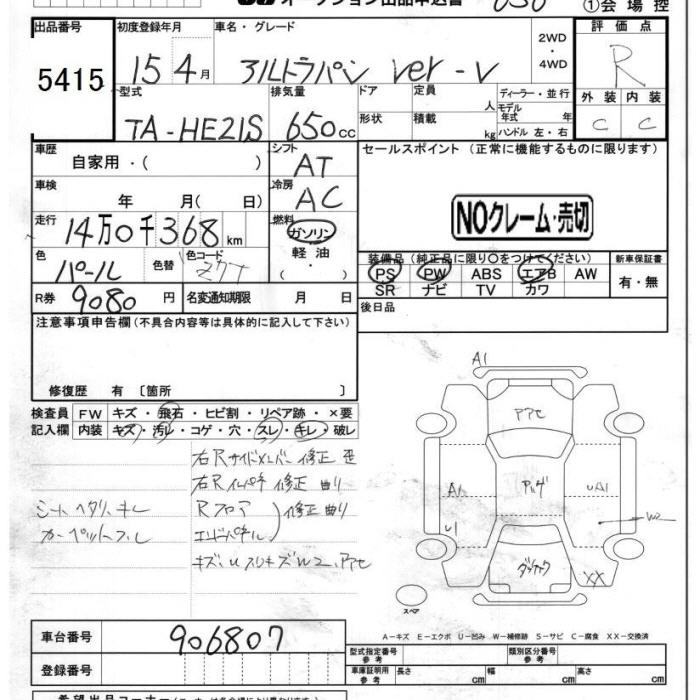 オークション出品申込書 ①会場控
出品番号 初度登録年月 車名・グレード 2WD・4WD 評価点
5415 15年4月 アルトラパン ver-V R
型式 排気量 ドア 定員 人 ディーラー・並行
TA-HE21S 650cc 形状 積載 kg モデル年式 年式 ハンドル 左・右
外装 内装
C C
車歴 自家用・( ) シフト AT
セールスポイント(正常に機能するものに限ります)
車検 年 月( 日) 冷房 AC
NOクレーム・売切
走行 14万0千368km 燃料 ガソリン・軽油・( )
色 パール 色替 色コード
装備品(純正品に限り○をつけてください) 新車保証書
PS PW ABS エアB AW 有・無
SR ナビ TV カワ
R券 9080円 名変通知期限 月 日
後日品
注意事項申告欄(不具合内容等は具体的に記入して下さい)
修復歴 有 〔箇所 〕
検査員 FW キズ・飛石・ヒビ割・リペア跡・×要
記入欄 内装 キズ・汚レ・コゲ・穴・スレ・キレ・破レ
右Rサイドメンバー修正 歪
右Rインパネ 修正 曲り
シートヘタリ、キレ Rフロア 修正 曲り
エンドパネル
キズ、U スリキズ W2、アアセ
A1
アアセ
A1 UA1
U1 W2
XX
スペア
A-キズ E-エクボ U-凹み W-補修跡 S-サビ C-腐食 XX-交換済
車台番号 906807
登録番号
型式指定番号 参考 類別区分番号 参考
車庫証明用 参考 長さ cm 幅 cm 高さ cm